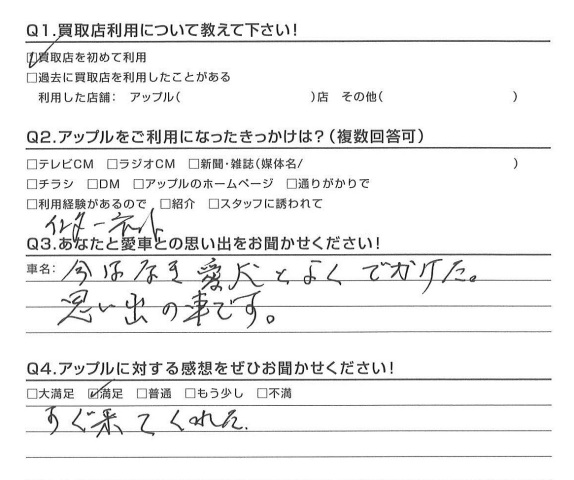 Q1.買取店利用について教えて下さい!
☑買取店を初めて利用
□過去に買取店を利用したことがある
利用した店舗: アップル( )店 その他( )
Q2.アップルをご利用になったきっかけは?(複数回答可)
□テレビCM □ラジオCM □新聞・雑誌(媒体名/ )
□チラシ □DM □アップルのホームページ □通りがかりで
□利用経験があるので □紹介 □スタッフに誘われて
インターネット
Q3.あなたと愛車との思い出をお聞かせください!
車名: 今はなき愛犬とよくでかけた。
思い出の車です。
Q4.アップルに対する感想をぜひお聞かせください!
□大満足 ☑満足 □普通 □もう少し □不満
すぐ来てくれた.